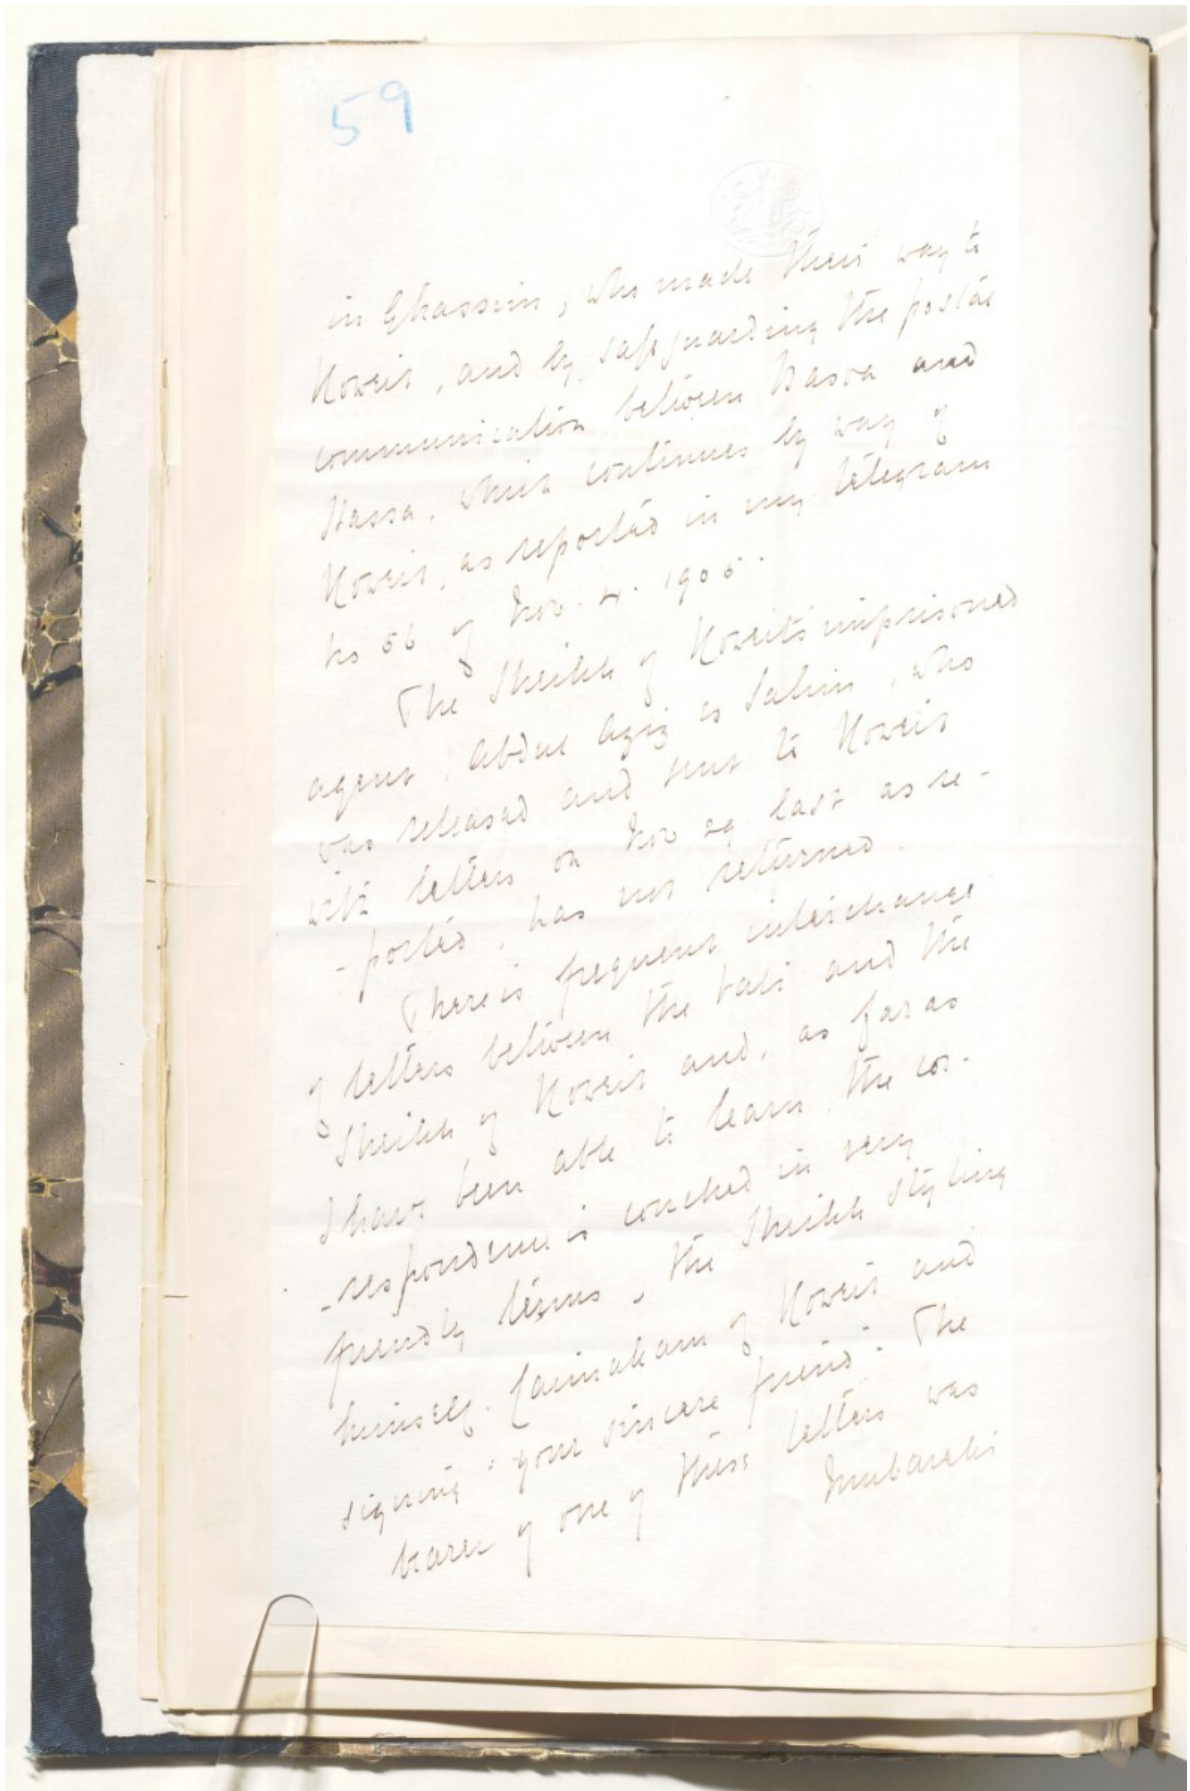 59
in Ghassim, who made their way to
Koweit, and by safeguarding the postal
communication between Basra and
Hassa, which continues by way of
Koweit, as reported in my telegram
No 56 of Nov. 4. 1905.
The Sheikh of Koweit's imprisoned
agent, Abdul Aziz es Salim, who
was released and sent to Koweit
with letters on Nov 29 last as re-
-ported, has not returned.
There is frequent interchange
of letters between the Vali and the
Sheikh of Koweit and, as far as
I have been able to learn, the cor-
-respondence is couched in very
friendly terms, the Sheikh styling
himself Caimakam of Koweit and
signing "your sincere friend". The
bearer of one of these letters was
Mubarak's